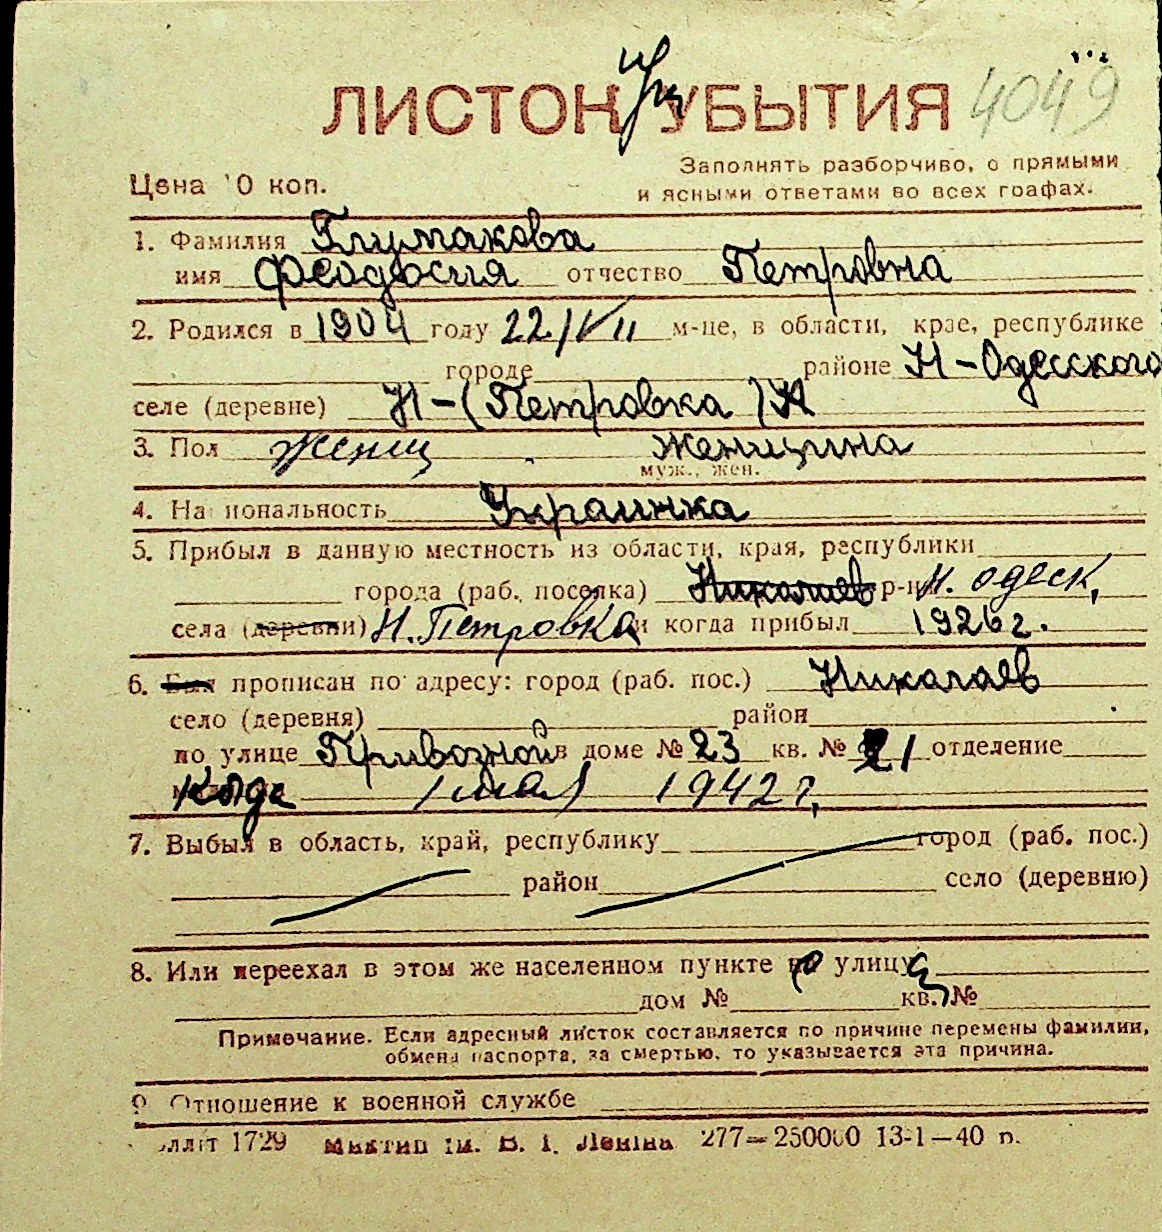 ЛИСТОК УБЫТИЯ 4049
Заполнять разборчиво, с прямыми
Цена 10 коп. и ясными ответами во всех графах.
1. Фамилия Глумакова
имя Феодосия отчество Петровна
2. Родился в 1904 году 22/VII м-це, в области, крае, республике
городе районе Н-Одесского
селе (деревне) Н-(Петровка)
3. Пол Женщ Женщина
муж., жен.
4. Национальность Украинка
5. Прибыл в данную местность из области, края, республики
города (раб. поселка) Николаев р-н Н. Одеск,
села (деревни) Н. Петровка и когда прибыл 1926 г.
6. Был прописан по адресу: город (раб. пос.) Николаев
село (деревня) район
по улице Привозной в доме № 23 кв. № 21 отделение
Когда 1 мая 1942 г.
7. Выбыл в область, край, республику город (раб. пос.)
район село (деревню)
8. Или переехал в этом же населенном пункте по улицу
дом № кв. №
Примечание. Если адресный листок составляется по причине перемены фамилии,
обмена паспорта, за смертью, то указывается эта причина.
9. Отношение к военной службе
1729 ім. В. І. Леніна 277—250000 13-1—40 р.